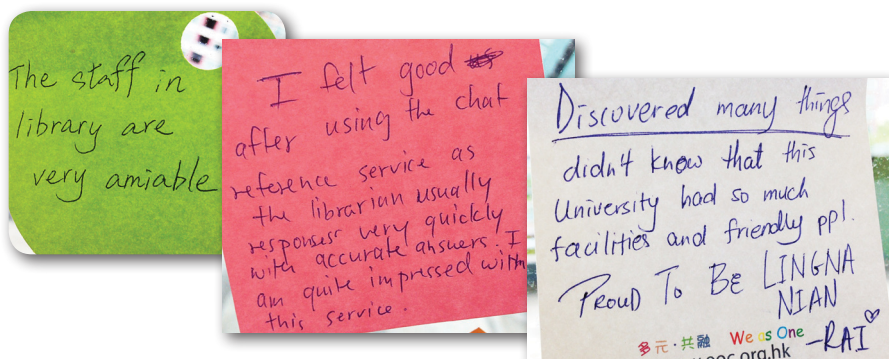 The staff in
library are
very amiable
I felt good
after using the chat
reference service as
the librarian usually
responses very quickly
with accurate answers. I
am quite impressed with
this service.
Discovered many things
didn't know that this
University had so much
facilities and friendly ppl.
PROUD TO BE LINGNA
NIAN
多元·共融 We as One
-RAI
.org.hk